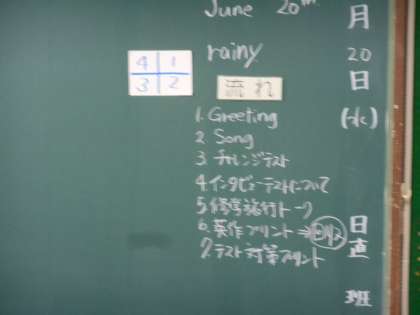 June 20th
rainy
4 1
3 2
流れ
1. Greeting
2. Song
3. チャレンジテスト
4. インタビューテストについて
5. 修学旅行トーク
6. 英作プリント⇒回収
7. テスト対策プリント
月
20
日
(水)
日直
班